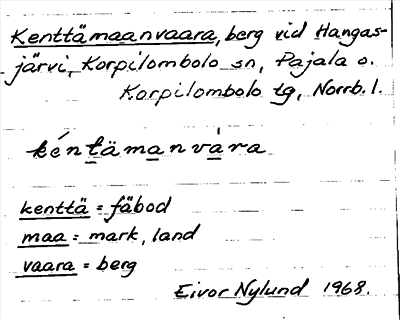 Kenttämaanvaara, berg vid Hangas-
järvi, Korpilombolo sn, Pajala o.
Korpilombolo tg, Norrb. l.
kéntämanvára
kenttä = fäbod
maa = mark, land
vaara = berg
Eivor Nylund 1968.